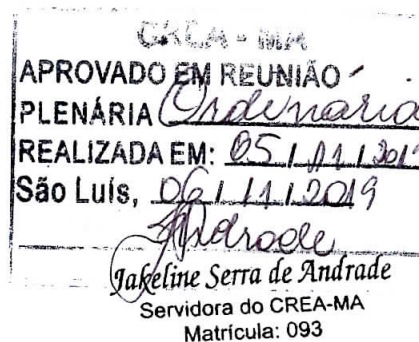 CREA - MA
APROVADO EM REUNIÃO
PLENÁRIA Ordinária
REALIZADA EM: 05 / 11 / 201
São Luís, 06 / 11 / 2019
Andrade
Jakeline Serra de Andrade
Servidora do CREA-MA
Matrícula: 093